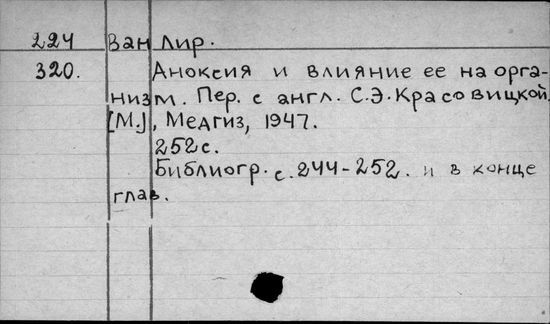 224 Ван Лир.
320. Аноксия и влияние ее на орга-
низм. Пер. с англ. С.Э. Красовицкой.
[М.], Медгиз, 1947.
252с.
Библиогр. с. 244-252. и в конце
глав.